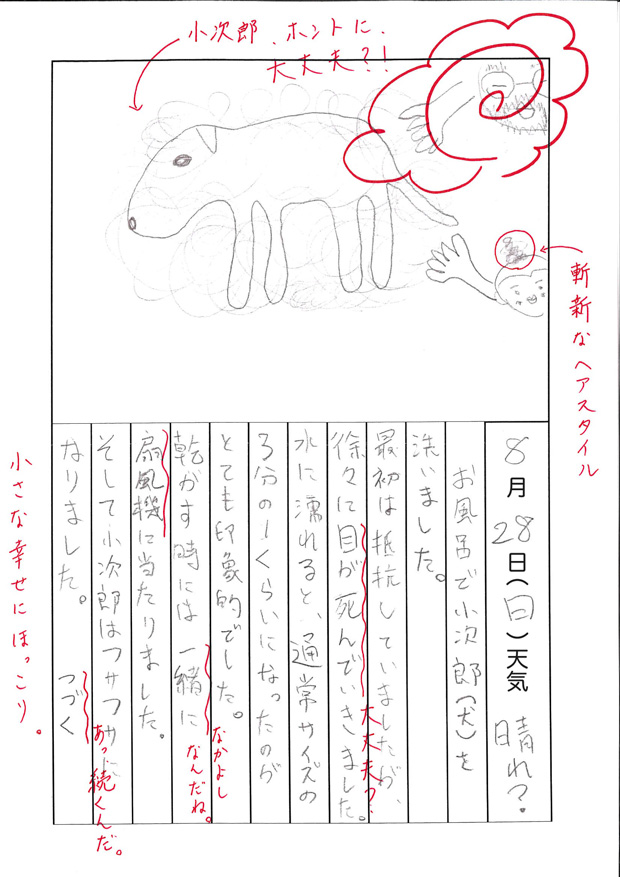 小次郎、ホントに
大丈夫?!
斬新なヘアスタイル
8月28日(日)天気 晴れ?
お風呂で小次郎(犬)を
洗いました。
最初は抵抗していましたが、
徐々に目が死んでいきました。
大丈夫?
水に濡れると、通常サイズの
3分の1くらいになったのが
とても印象的でした。
なかよし
なんだね。
乾かす時には一緒に
扇風機に当たりました。
そして小次郎はフサフサに
なりました。
つづく
あっ続くんだ。
小さな幸せにほっこり。